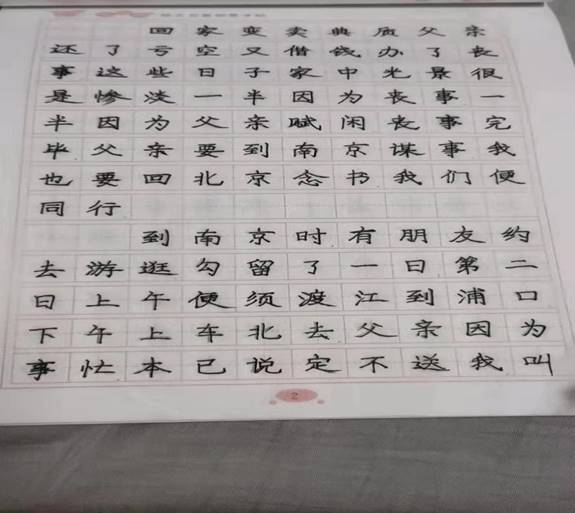 回家变卖典质父亲
还了亏空又借钱办了丧
事这些日子家中光景很
是惨淡一半因为丧事一
半因为父亲赋闲丧事完
毕父亲要到南京谋事我
也要回北京念书我们便
同行
到南京时有朋友约
去游逛勾留了一日第二
日上午便须渡江到浦口
下午上车北去父亲因为
事忙本已说定不送我叫
2